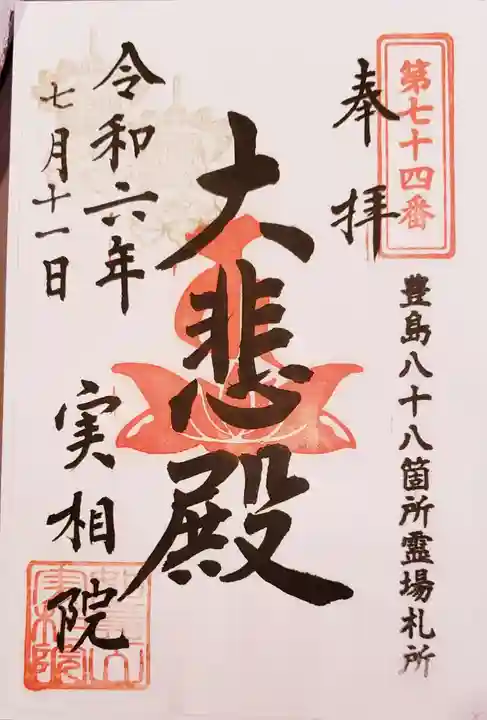 第七十四番
豊島八十八箇所霊場札所
奉拝
大悲殿
令和六年
七月十一日
実相院